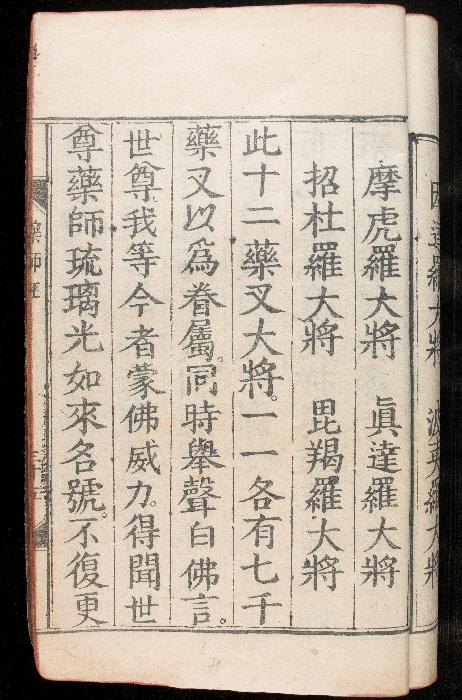 因達羅大將 波夷羅大將
摩虎羅大將 眞達羅大將
招杜羅大將 毘羯羅大將
此十二藥叉大將。一一各有七千
藥叉以為眷屬。同時舉聲白佛言。
世尊我等今者蒙佛威力。得聞世
尊藥師琉璃光如來名號。不復更
藥師經